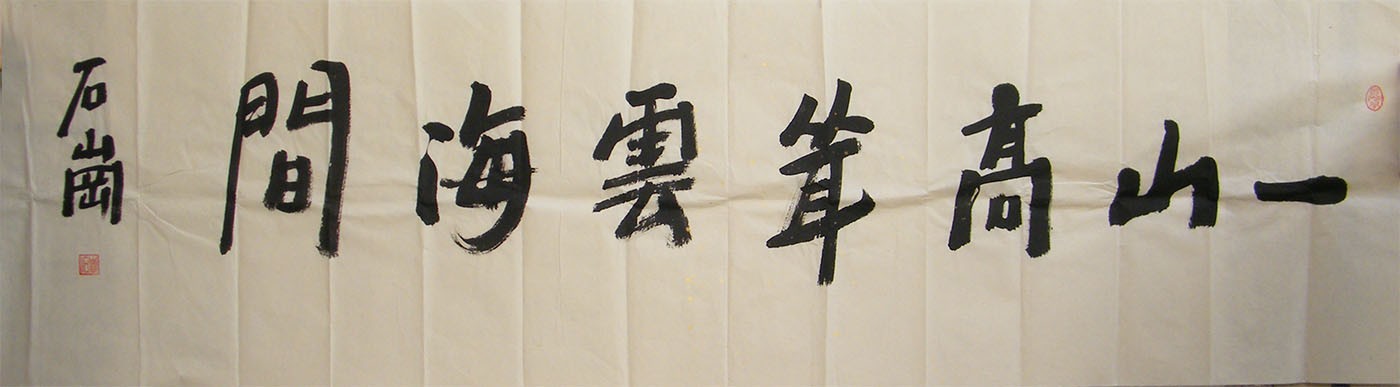 一山高耸雲海間
石山岡